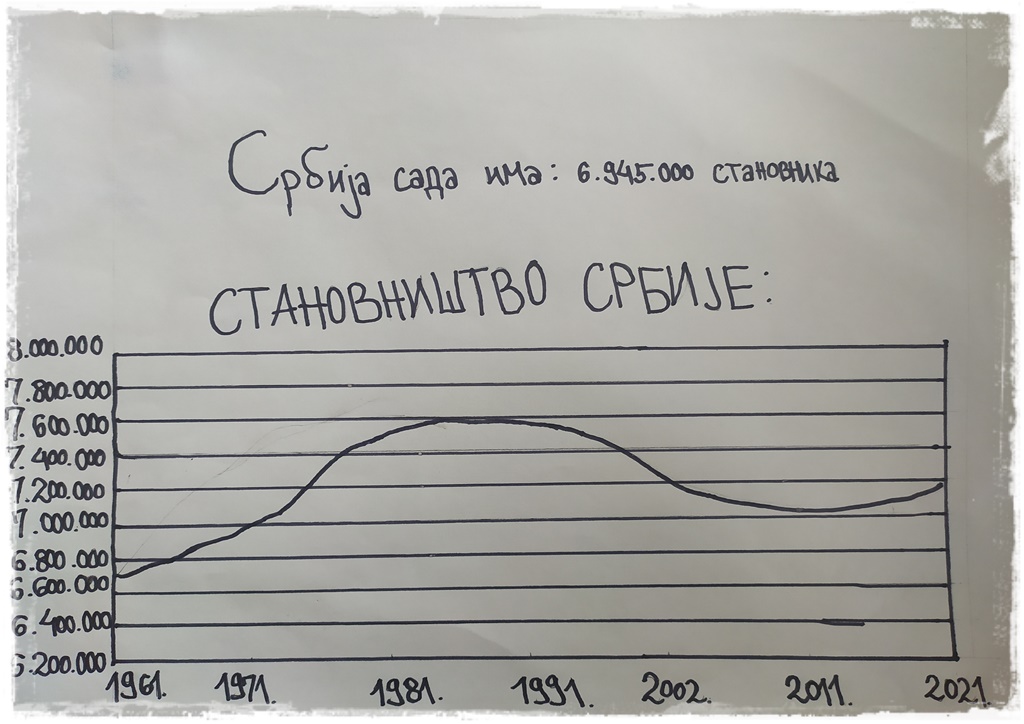 Србија сада има: 6.945.000 становника
СТАНОВНИШТВО СРБИЈЕ:
8.000.000
7.800.000
7.600.000
7.400.000
7.200.000
7.000.000
6.800.000
6.600.000
6.400.000
6.200.000
1961. 1971. 1981. 1991. 2002. 2011. 2021.